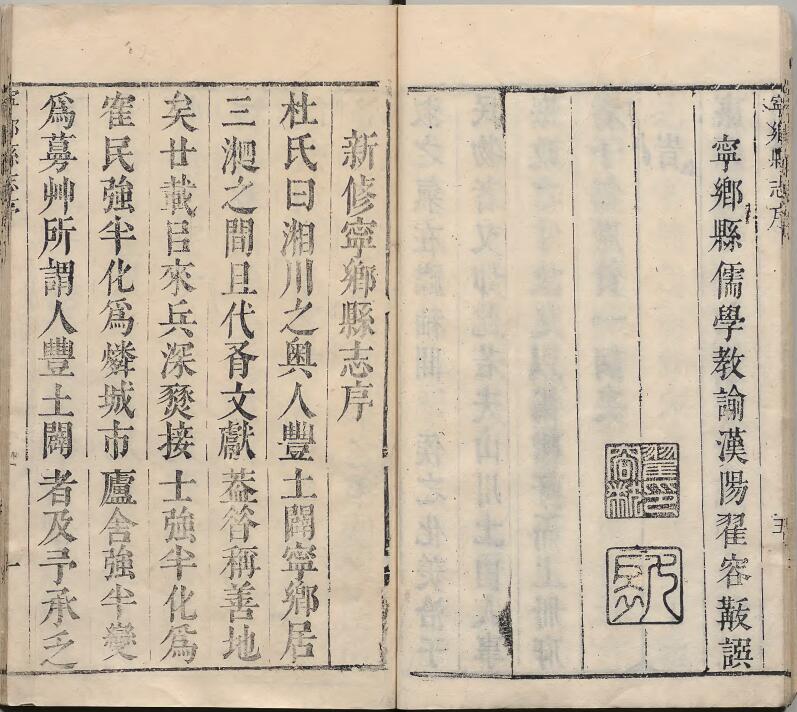 寧鄉縣志序
寧鄉縣儒學教諭漢陽翟容譔
新修寧鄉縣志序
杜氏曰湘川之奥人豐土闢寧鄉居
三之間且代胥文獻葢稱善地
矣廿載㠯來兵深燹接士強半化爲
寉民強半化爲燐城市廬舍強半變
爲艸所謂人豐土闢者及予承乏
寧鄉縣志序
一